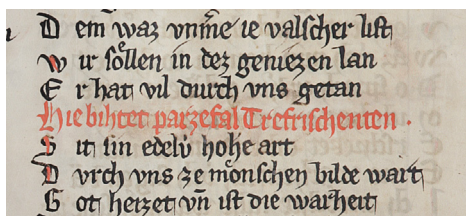 D em waz vnm̄e ie valscher list
w ir soͤllen in dez geniezen lan
E r hat vil durch vns getan
Hie bihtet parzefal Trefrischenten ·
S it sin edelv̍ hohe art
D vrch vns ze moͤnschen bilde wart
G ot heizet vn̄ ist die warheit